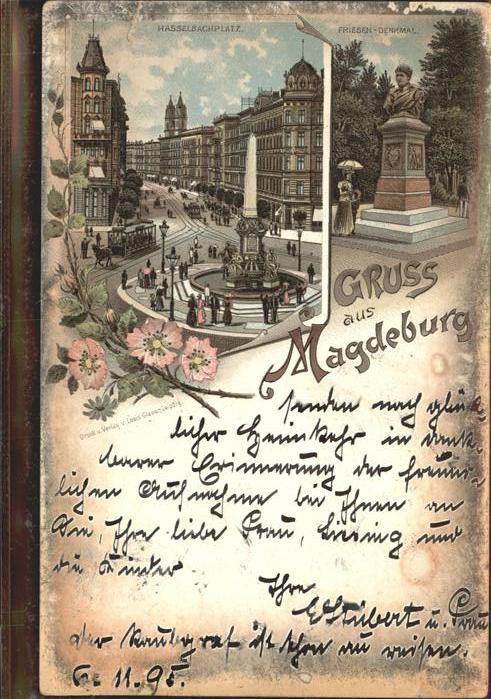 HASSELBACHPLATZ.
FRIESEN-DENKMAL.
GRUSS
aus
Magdeburg
Druck u. Verlag v. Louis Glaser, Leipzig.
senden nach glück-
licher Heimkehr in dank-
barer Erinnerung der freund-
lichen Aufnahme bei Ihnen an
Sie, Ihre liebe Frau, und
die Kinder
Ihre
u. Frau
der Raubgraf ist schon
6. 11. 95.